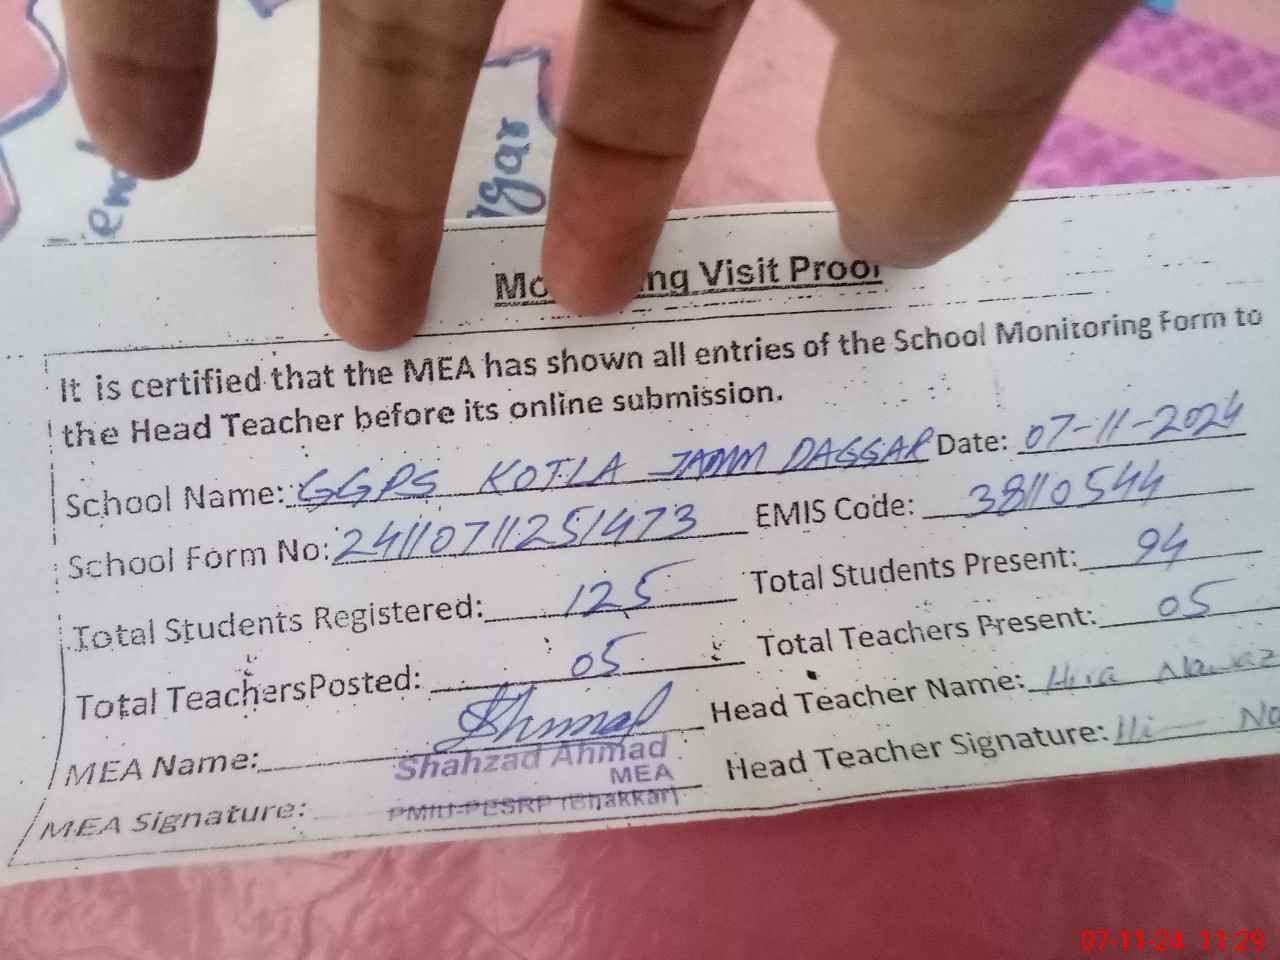 ngar
Visit Proof
It is certified that the MEA has shown all entries of the School Monitoring Form to
the Head Teacher before its online submission.
School Name: GGPS KOTLA JAMM DAGGAR Date: 07-11-2024
School Form No: 24110711251473 EMIS Code: 38110544
Total Students Registered: 125 Total Students Present: 94
Total Teachers Posted: 05 Total Teachers Present: 05
MEA Name: Head Teacher Name: Hira Nawaz
Shahzad Ahmad
MEA
MEA Signature: PMIU-PESRP (Bhakkar) Head Teacher Signature:
07-11-24 11:29